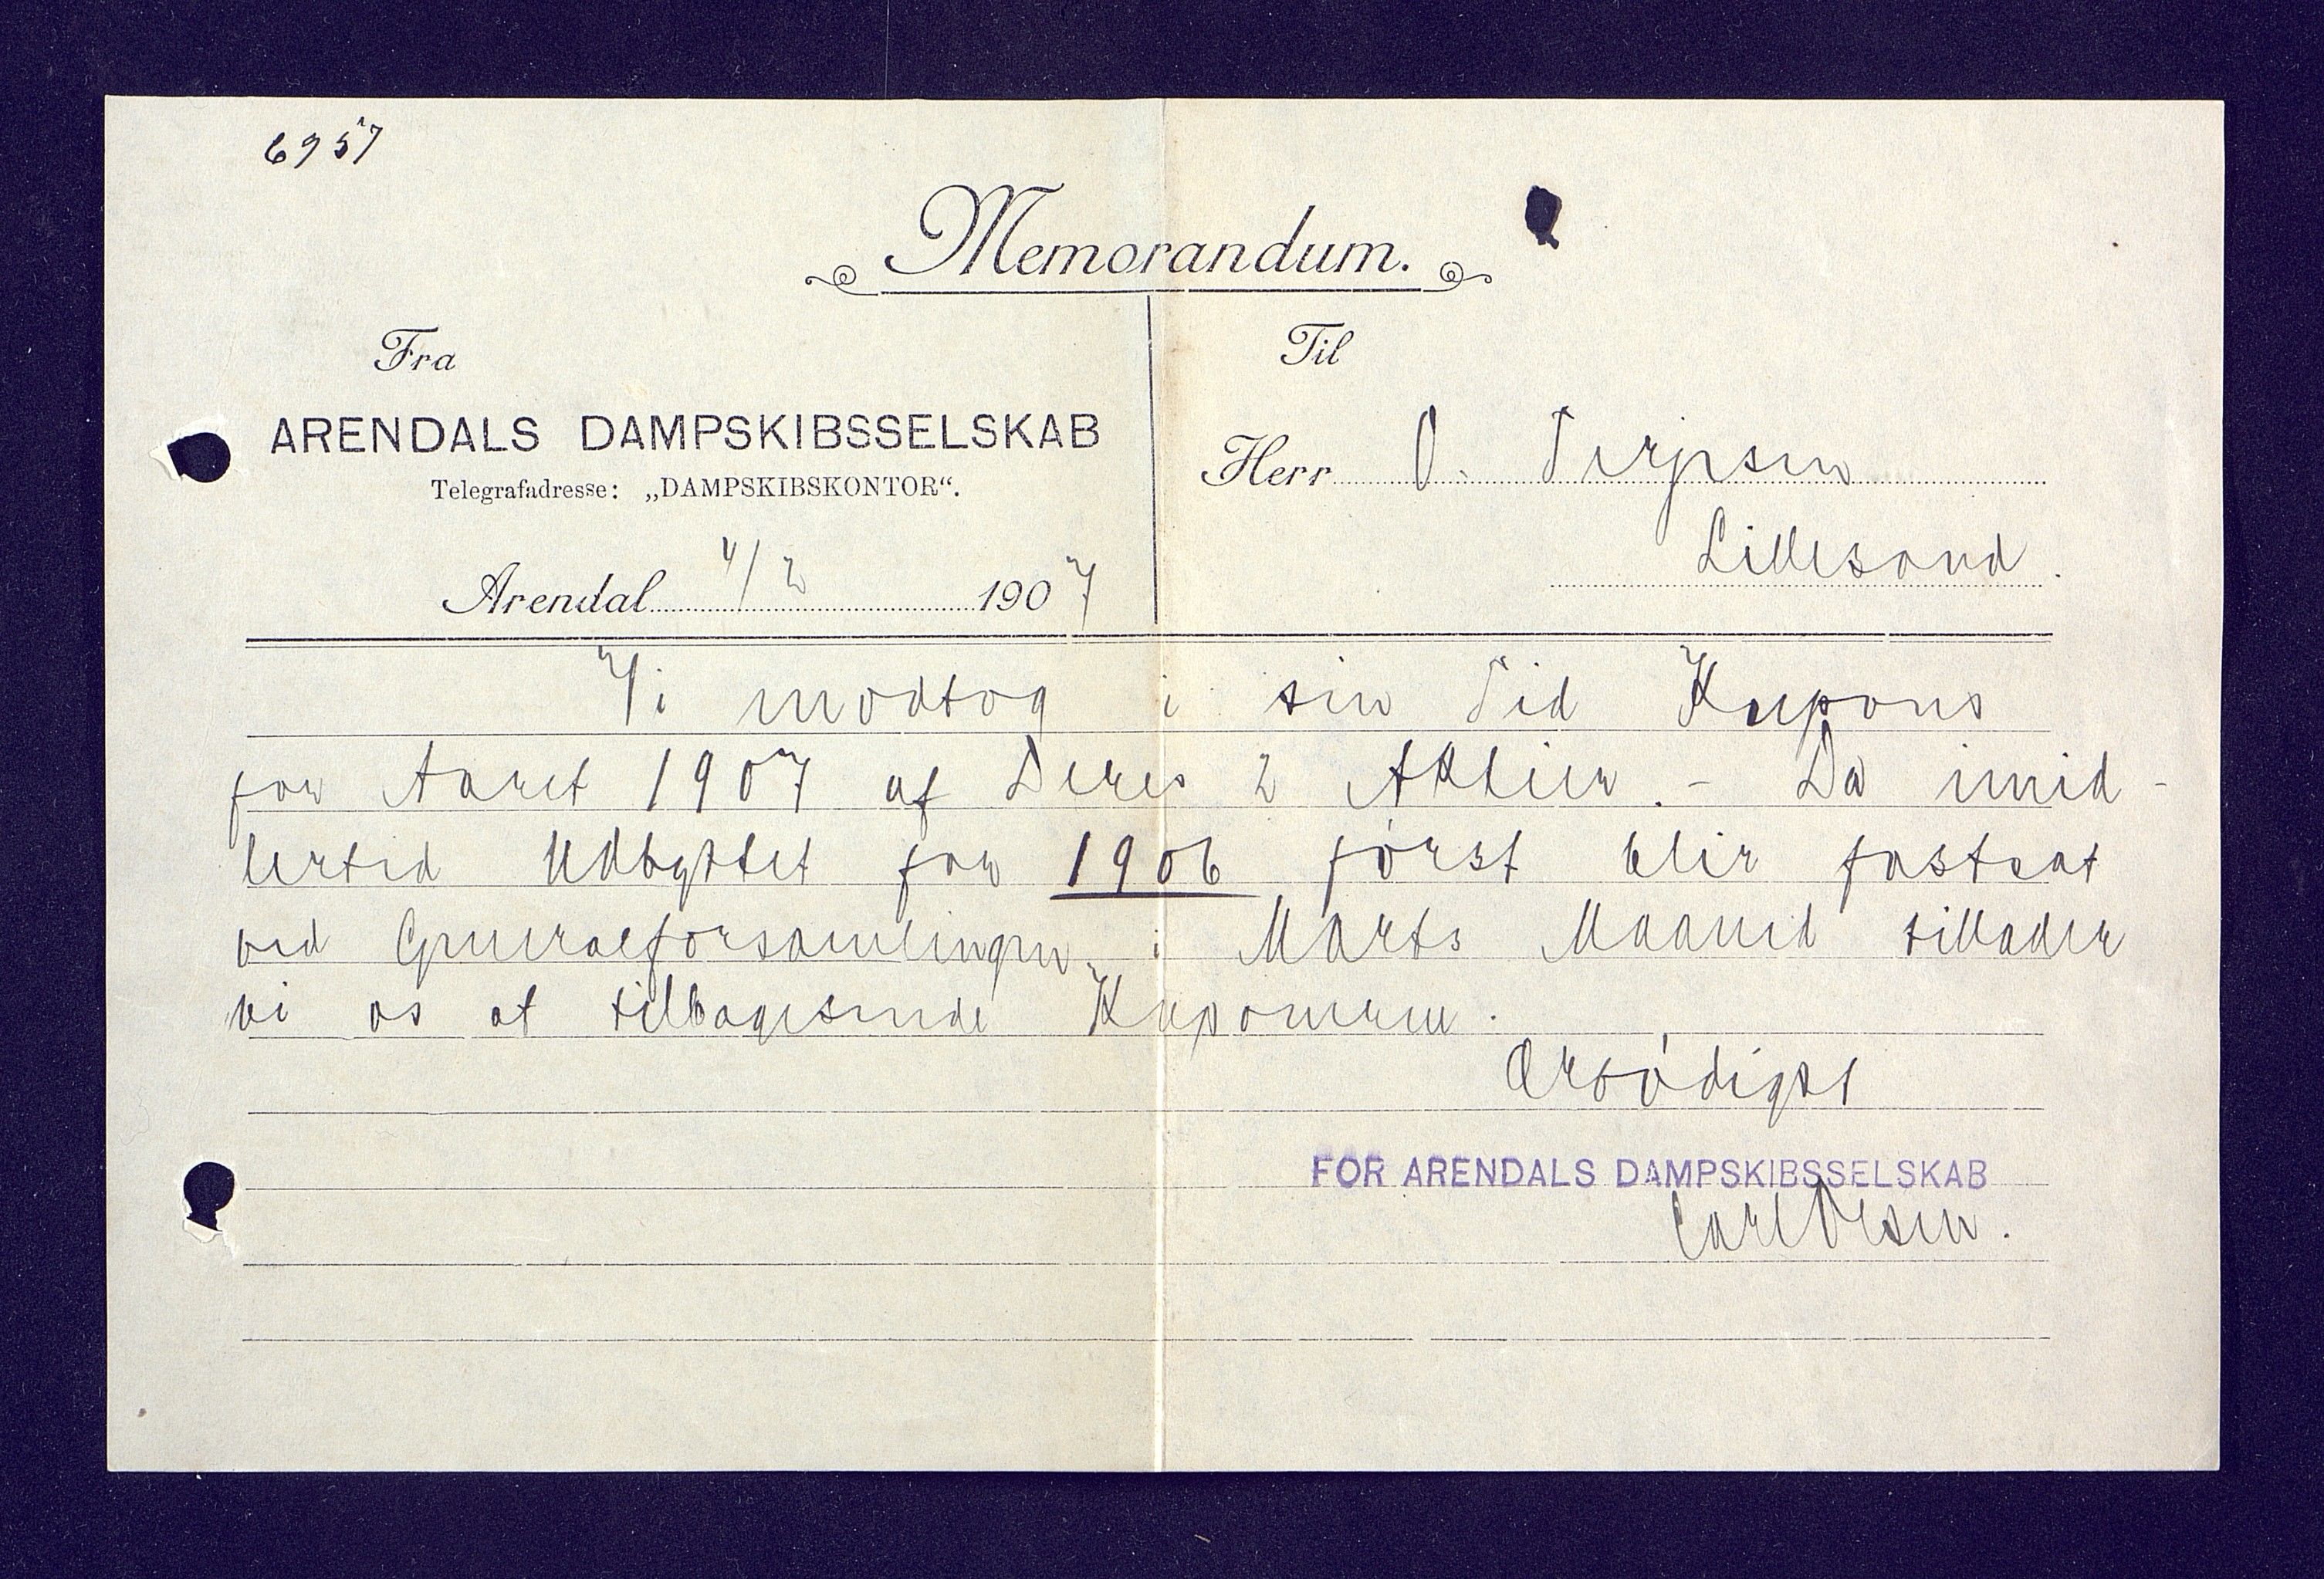 6957
Memorandum.
Fra
ARENDALS DAMPSKIBSSELSKAB
Telegrafadresse: „DAMPSKIBSKONTOR“.
Arendal 4/2 1907
Til
Herr O. Terjesen
Lillesand.
Vi modtog i sin Tid Kupons
for Aaret 1907 af Deres 2 Aktier. - Da imid-
lertid Udbyttet for 1906 först blir fastsat
ved Generalforsamlingen i Marts Maaned tillader
vi os at tilbagesende Kuponerne.
Ærbödigst
FOR ARENDALS DAMPSKIBSSELSKAB
Carl Olsen.